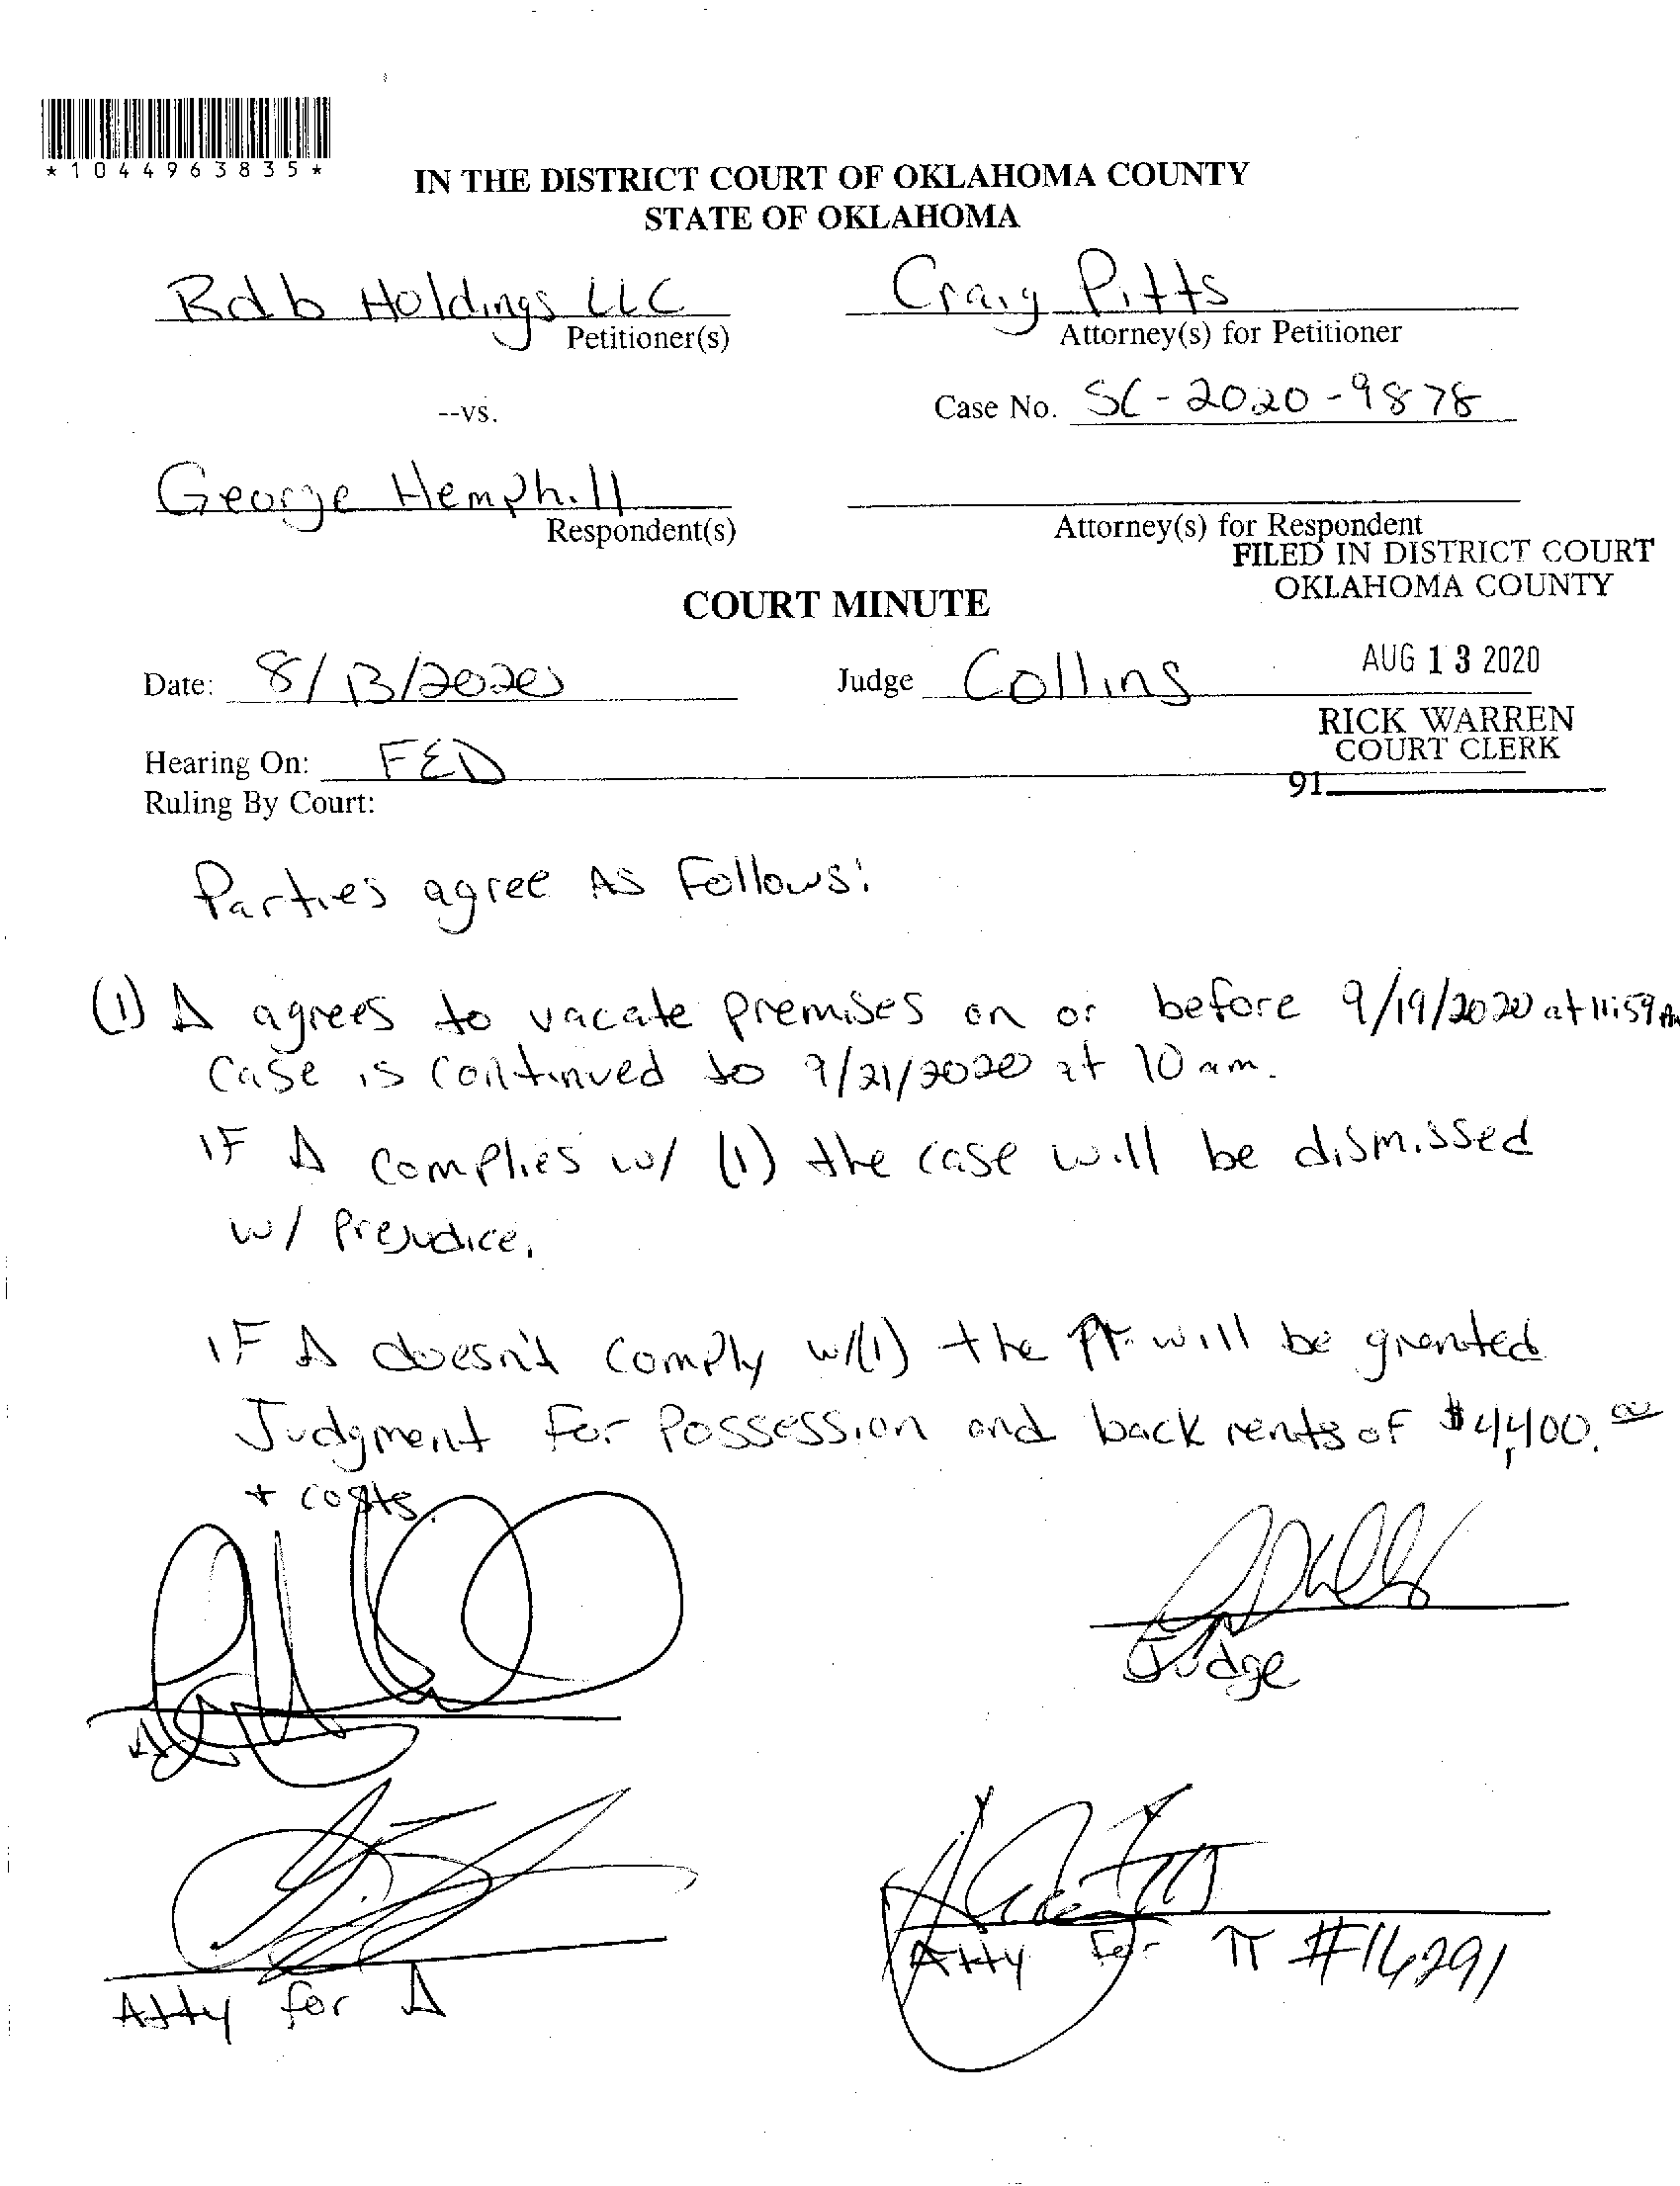 *10449638 35*
IN THE DISTRICT COURT OF OKLAHOMA COUNTY
STATE OF OKLAHOMA
Rdb Holdings LLC
Petitioner(s)
Craig Pitts
Attorney(s) for Petitioner
--vs.
Case No. SC-2020-9878
George Hemphill
Respondent(s)
Attorney(s) for Respondent
FILED IN DISTRICT COURT
OKLAHOMA COUNTY
COURT MINUTE
Date: 8/13/2020
Judge Collins
AUG 13 2020
RICK WARREN
COURT CLERK
91
Hearing On: FED
Ruling By Court:
Parties agree as Follows:
(1) Δ agrees to vacate premises on or before 9/19/2020 at 11:59
Case is continued to 9/21/2020 at 10 am.
IF Δ complies w/ (1) the case will be dismissed
w/ Prejudice.
IF Δ doesn't comply w/(1) the will be granted
Judgment for Possession and back rents of $4,400.00
+ costs.
Judge
Atty for Δ
Atty for π #16291